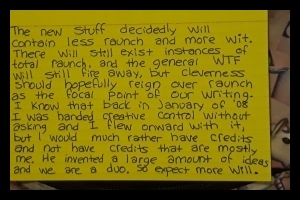 The new stuff decidedly will
contain less raunch and more wit.
There will still exist instances of
total raunch, and the general WTF
will still fire away, but cleverness
should hopefully reign over raunch
as the focal point of our writing.
I know that back in January of '08
I was handed creative control without
asking and I flew onward with it,
but I would much rather have credits
and not have credits that are mostly
me. He invented a large amount of ideas
and we are a duo. So expect more Will.